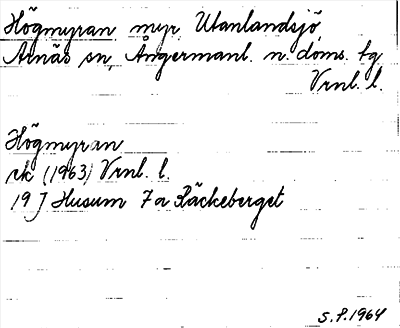 Högmyran myr, Utanlandsjö,
Arnäs sn, Ångermanl. n. doms. tg
Vrnl. l.
Högmyran
rk (1963) Vrnl. l.
19 J Husum 7 a Räckeberget
S.P. 1964